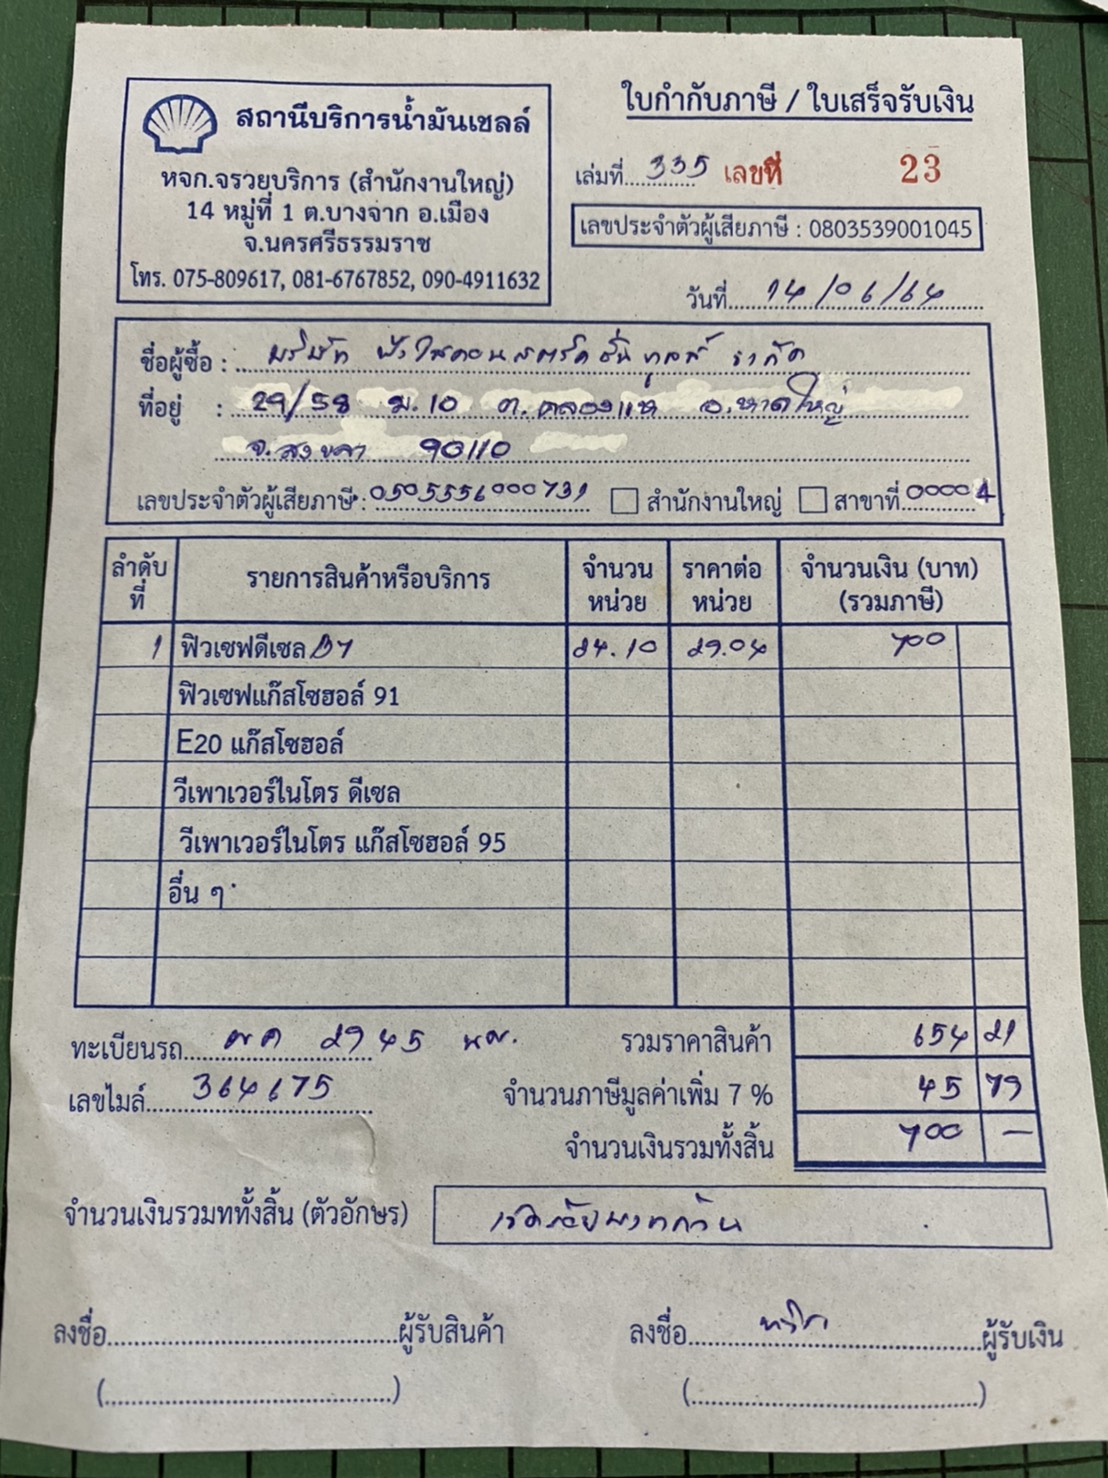 สถานีบริการน้ำมันเชลล์
หจก.จรวยบริการ (สำนักงานใหญ่)
14 หมู่ที่ 1 ต.บางจาก อ.เมือง
จ.นครศรีธรรมราช
โทร. 075-809617, 081-6767852, 090-4911632
ใบกำกับภาษี / ใบเสร็จรับเงิน
เล่มที่ 335 เลขที่ 23
เลขประจำตัวผู้เสียภาษี : 0803539001045
วันที่ 14/06/64
ชื่อผู้ซื้อ : บริษัท จำกัด
ที่อยู่ : 29/58 ม.10 ต.คลองแห อ.หาดใหญ่
จ.สงขลา 90110
เลขประจำตัวผู้เสียภาษี : 0505556000731 สำนักงานใหญ่ สาขาที่ 00004
ลำดับที่ รายการสินค้าหรือบริการ จำนวนหน่วย ราคาต่อหน่วย จำนวนเงิน (บาท) (รวมภาษี)
1 ฟิวเซฟดีเซล B7 24.10 29.04 700
ฟิวเซฟแก๊สโซฮอล์ 91
E20 แก๊สโซฮอล์
วีเพาเวอร์ไนโตร ดีเซล
วีเพาเวอร์ไนโตร แก๊สโซฮอล์ 95
อื่น ๆ
ทะเบียนรถ 2945 รวมราคาสินค้า 654 21
เลขไมล์ 364675 จำนวนภาษีมูลค่าเพิ่ม 7 % 45 79
จำนวนเงินรวมทั้งสิ้น 700 —
จำนวนเงินรวมททั้งสิ้น (ตัวอักษร) เจ็ดร้อยบาทถ้วน
ลงชื่อ ผู้รับสินค้า ลงชื่อ ผู้รับเงิน